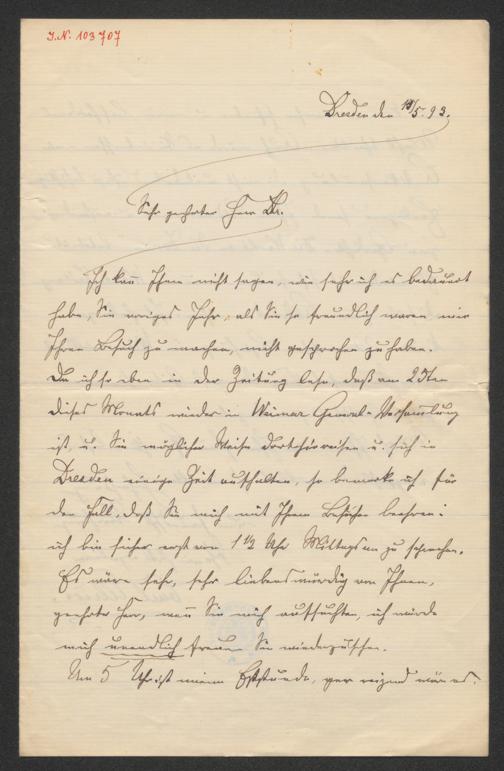 I.N. 103707
Dresden den 13/5. 93.
Sehr geehrter Herr Dr.
Ich kann Ihnen nicht sagen, wie sehr ich es bedauert
habe, Sie voriges Jahr, als Sie so freundlich waren, mir
Ihren Besuch zu machen, nicht gesprochen zu haben.
Da ich so eben in der Zeitung lese, daß am 20ten
dieses Monats wieder in Weimar General-Versammlung
ist, u. Sie möglicher Weise dorthin reisen u. sich in
Dresden einige Zeit aufhalten, so bemerke ich für
den Fall, daß Sie mich mit Ihrem Besuche beehren:
ich bin sicher erst von 1 1/2 Uhr Mittags an zu sprechen.
Es wäre sehr, sehr liebenswürdig von Ihnen,
geehrter Herr, wenn Sie mich aufsuchten, ich würde
mich unendlich freuen Sie wiederzusehen.
Um 5 Uhr ist meine Eßstunde, gar reizend wär es.